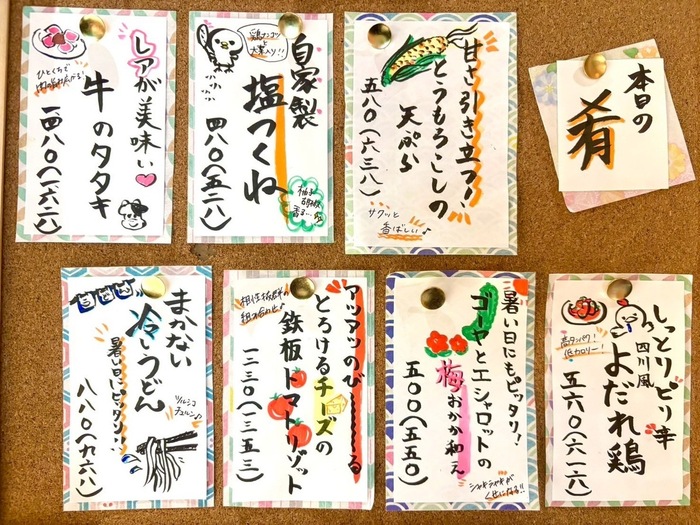 本日の
肴
甘さ引き立つ!
とうもろこしの
天ぷら
五八〇(六三八)
サクッと
香ばしい♪
鶏ナンコツ
大葉入り!!
自家製
塩つくね
四八〇(五二八)
柚子
胡椒
香る…
レアが美味い♥
牛のタタキ
ひとくちで
一四八〇(一六二八)
しっとりピリ辛
四川風
よだれ鶏
高タンパク!
低カロリー!
五六〇(六一六)
暑い日にもピッタリ!
ゴーヤとエシャロットの
梅おかか和え
五〇〇(五五〇)
シャキシャキが
くせになる!!
アツアツのび〜〜〜る
とろけるチーズの
鉄板トマトリゾット
相性抜群の
組み合わせ♪
一二三〇(一三五三)
まかない
冷しうどん
暑い日にピッタリ!!
ツルンコ
チュルン♪
八八〇(九六八)